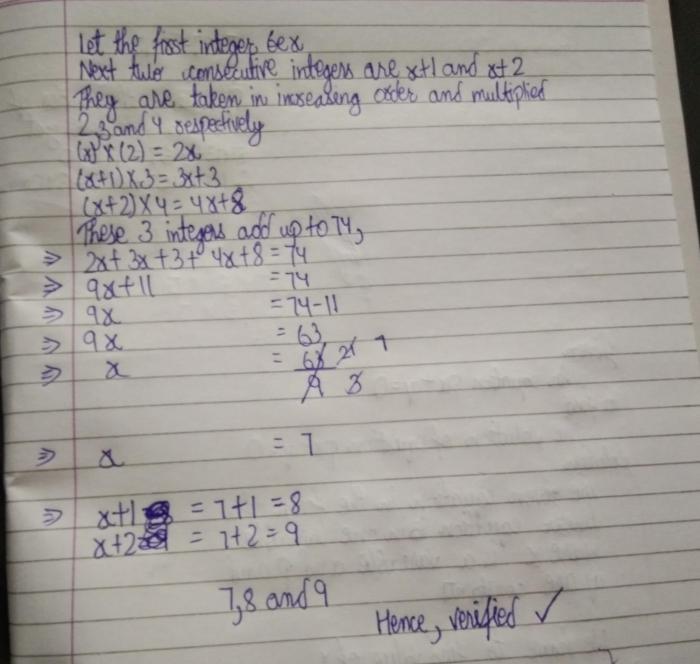 Let the first integer be x
Next two consecutive integers are x+1 and x+2
They are taken in increasing order and multiplied
2,3 and 4 respectively
(x) x (2) = 2x
(x+1) x 3 = 3x+3
(x+2) x 4 = 4x+8
These 3 integers add up to 74,
⇒ 2x+3x+3+ 4x+8 = 74
⇒ 9x+11 = 74
⇒ 9x = 74-11
⇒ 9x = 63
⇒ x = 63 21 7
9 3
⇒ x = 7
⇒ x+1 = 7+1 = 8
x+2 = 7+2 = 9
7,8 and 9
Hence, verified ✓